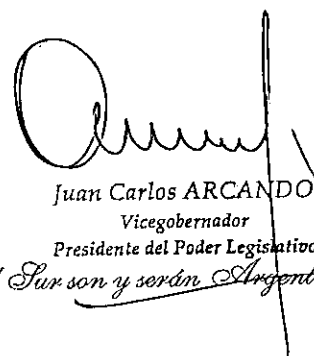 Juan Carlos ARCANDO
Vicegobernador
Presidente del Poder Legislativo
Sur son y serán Argent